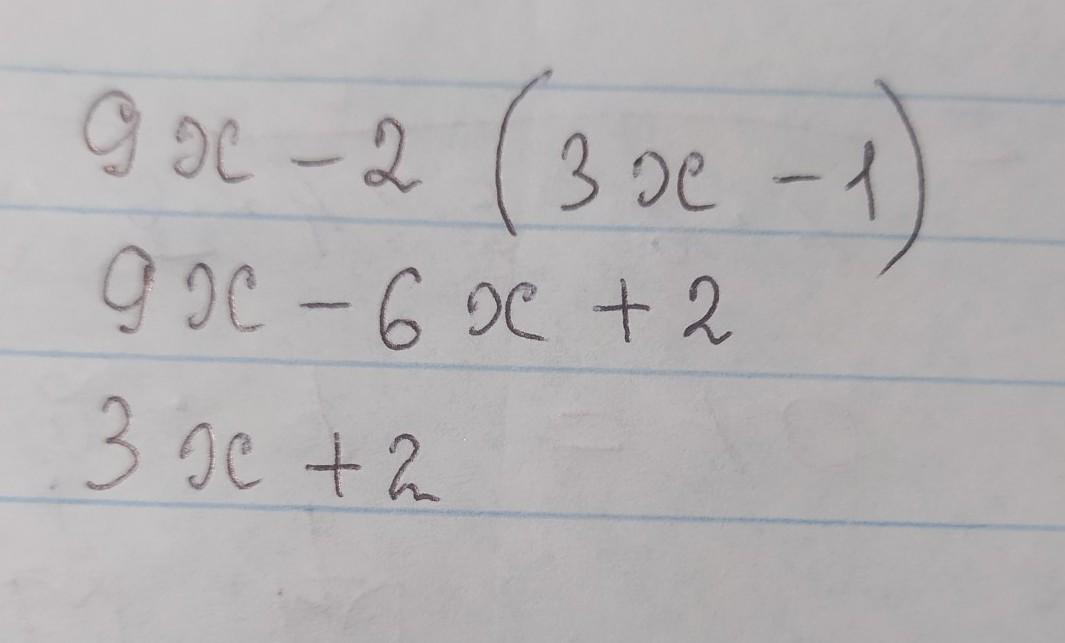 9x - 2 (3x - 1)
9x - 6x + 2
3x + 2